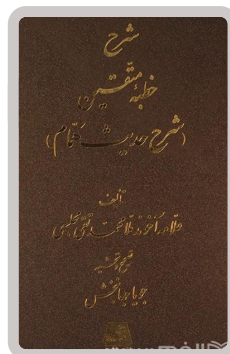 شرح
خطبهٔ متقین
(شرح حدیث همام)
تألیف
علامه آخوند ملا محمد تقی مجلسی
تصحیح و تحشیه
جویا جهانبخش